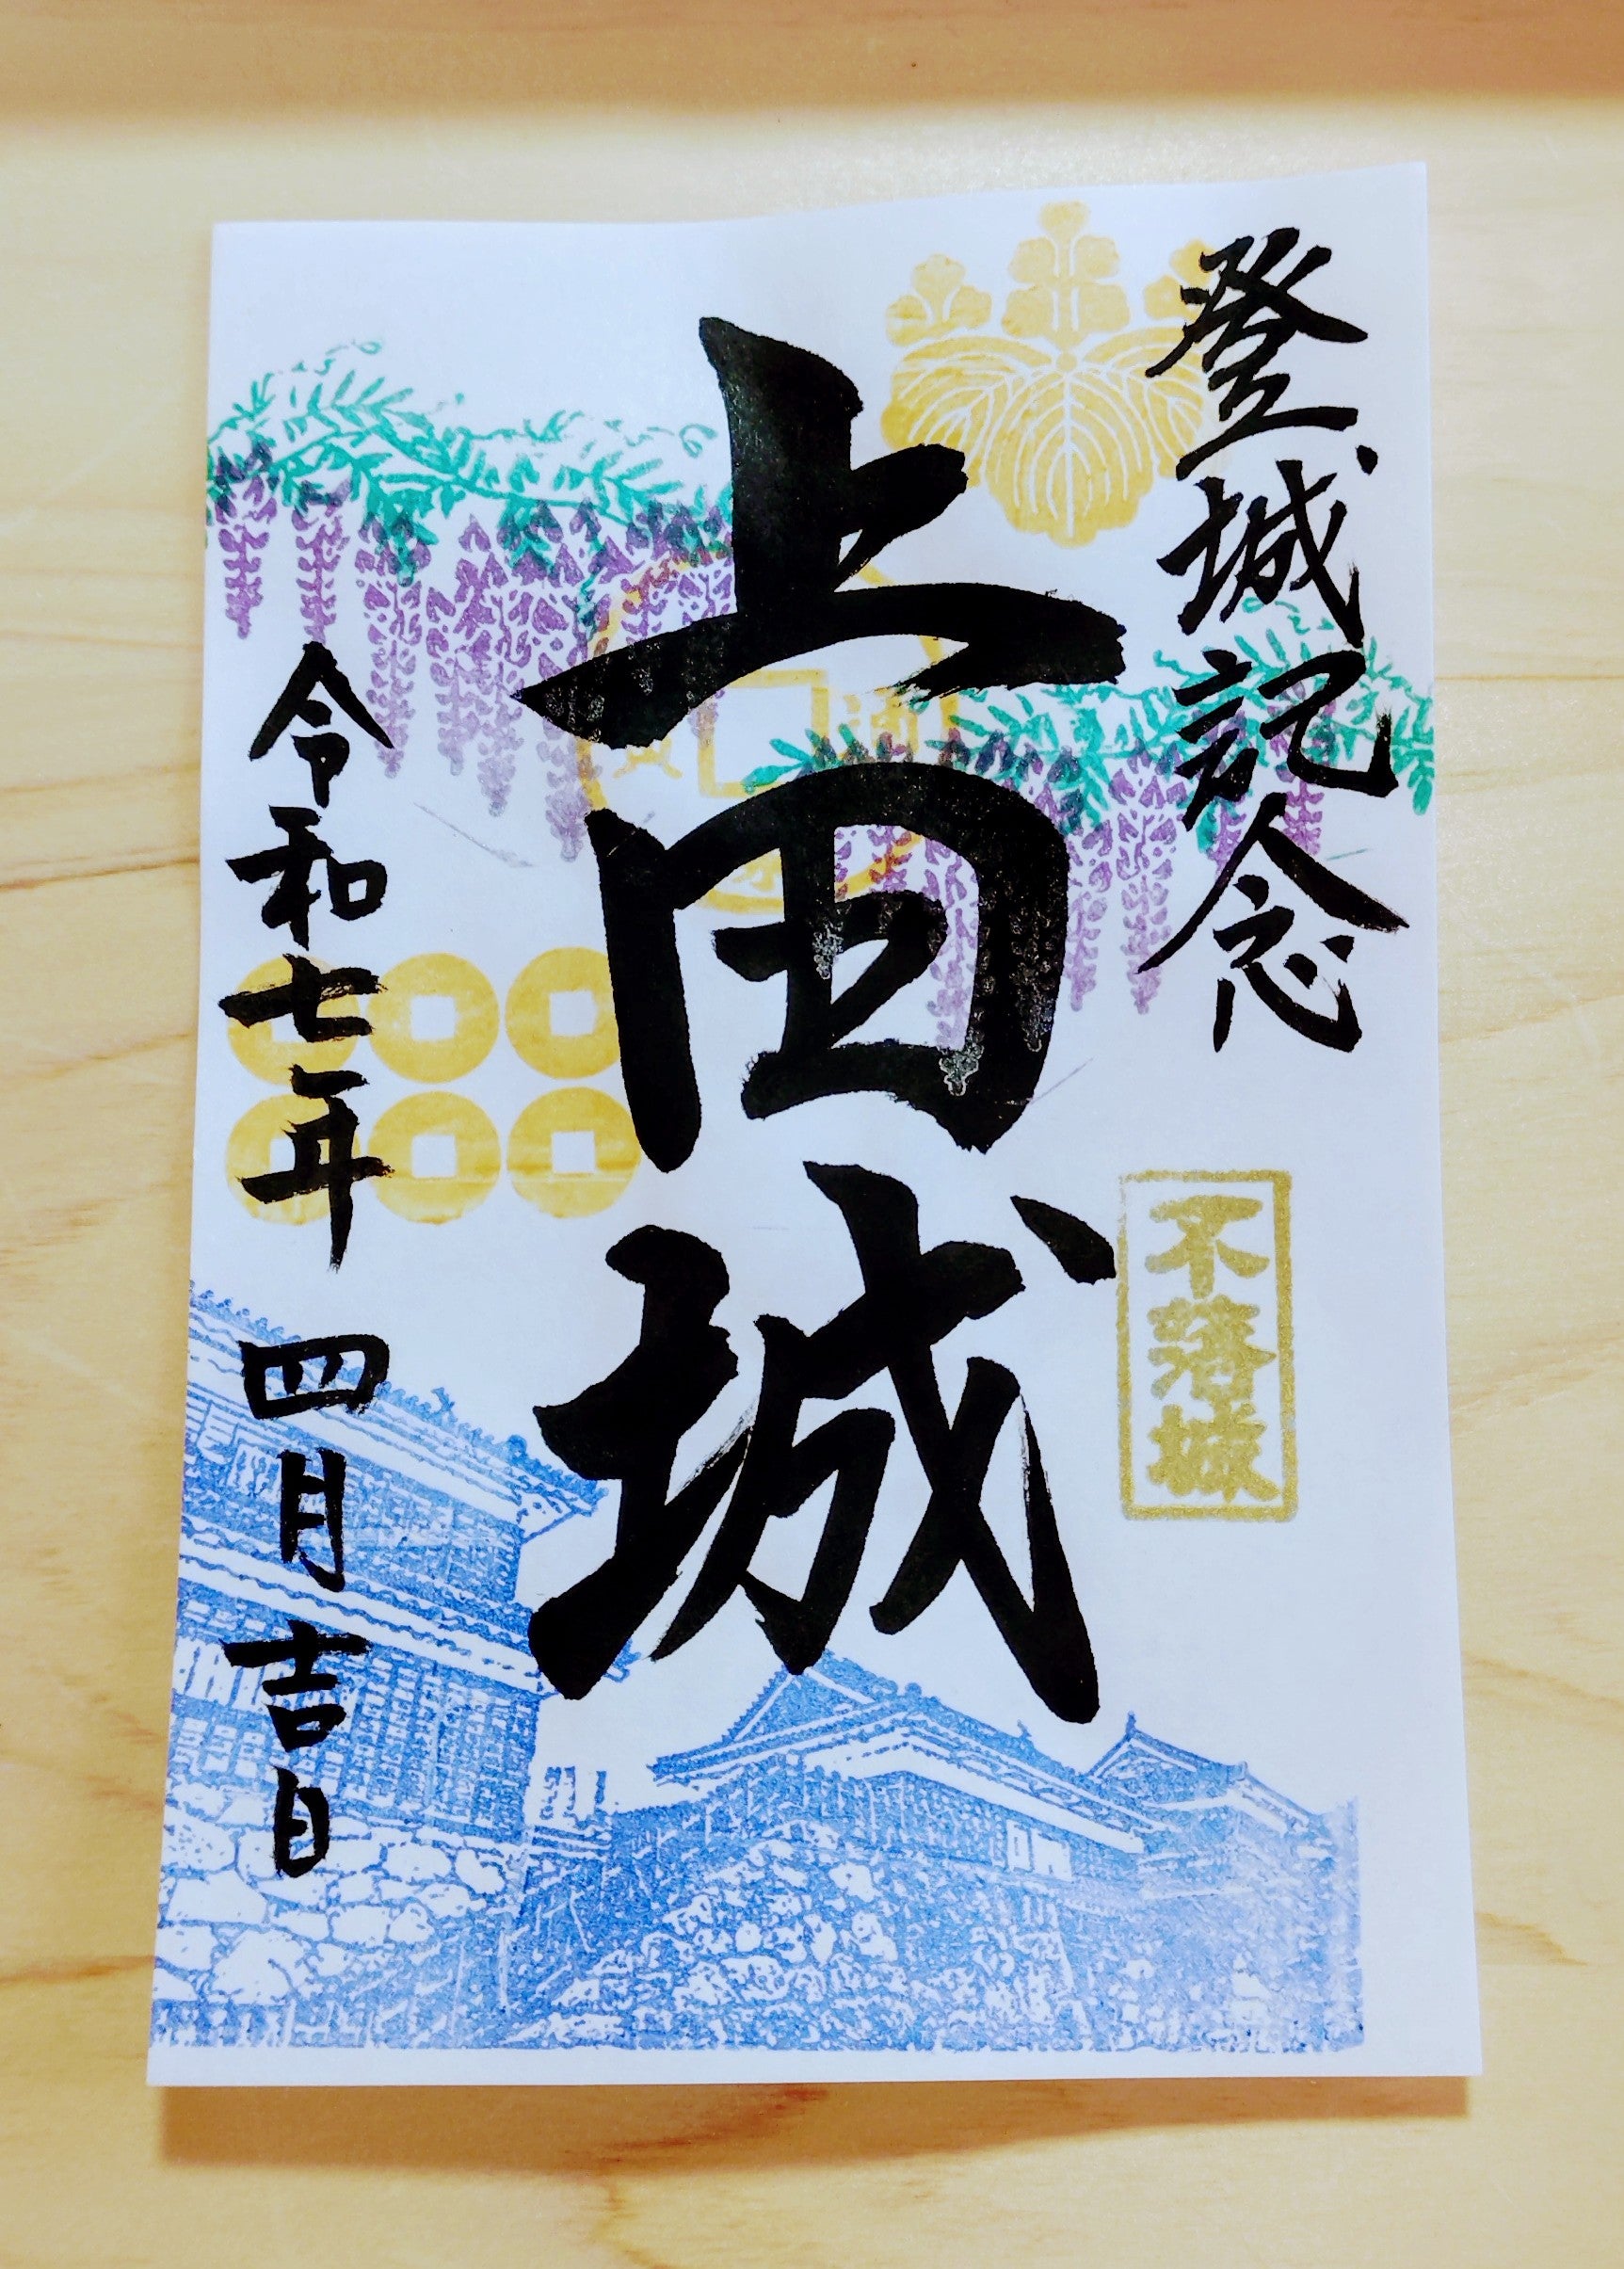 登城記念
不落城
上田城
令和七年 四月吉日